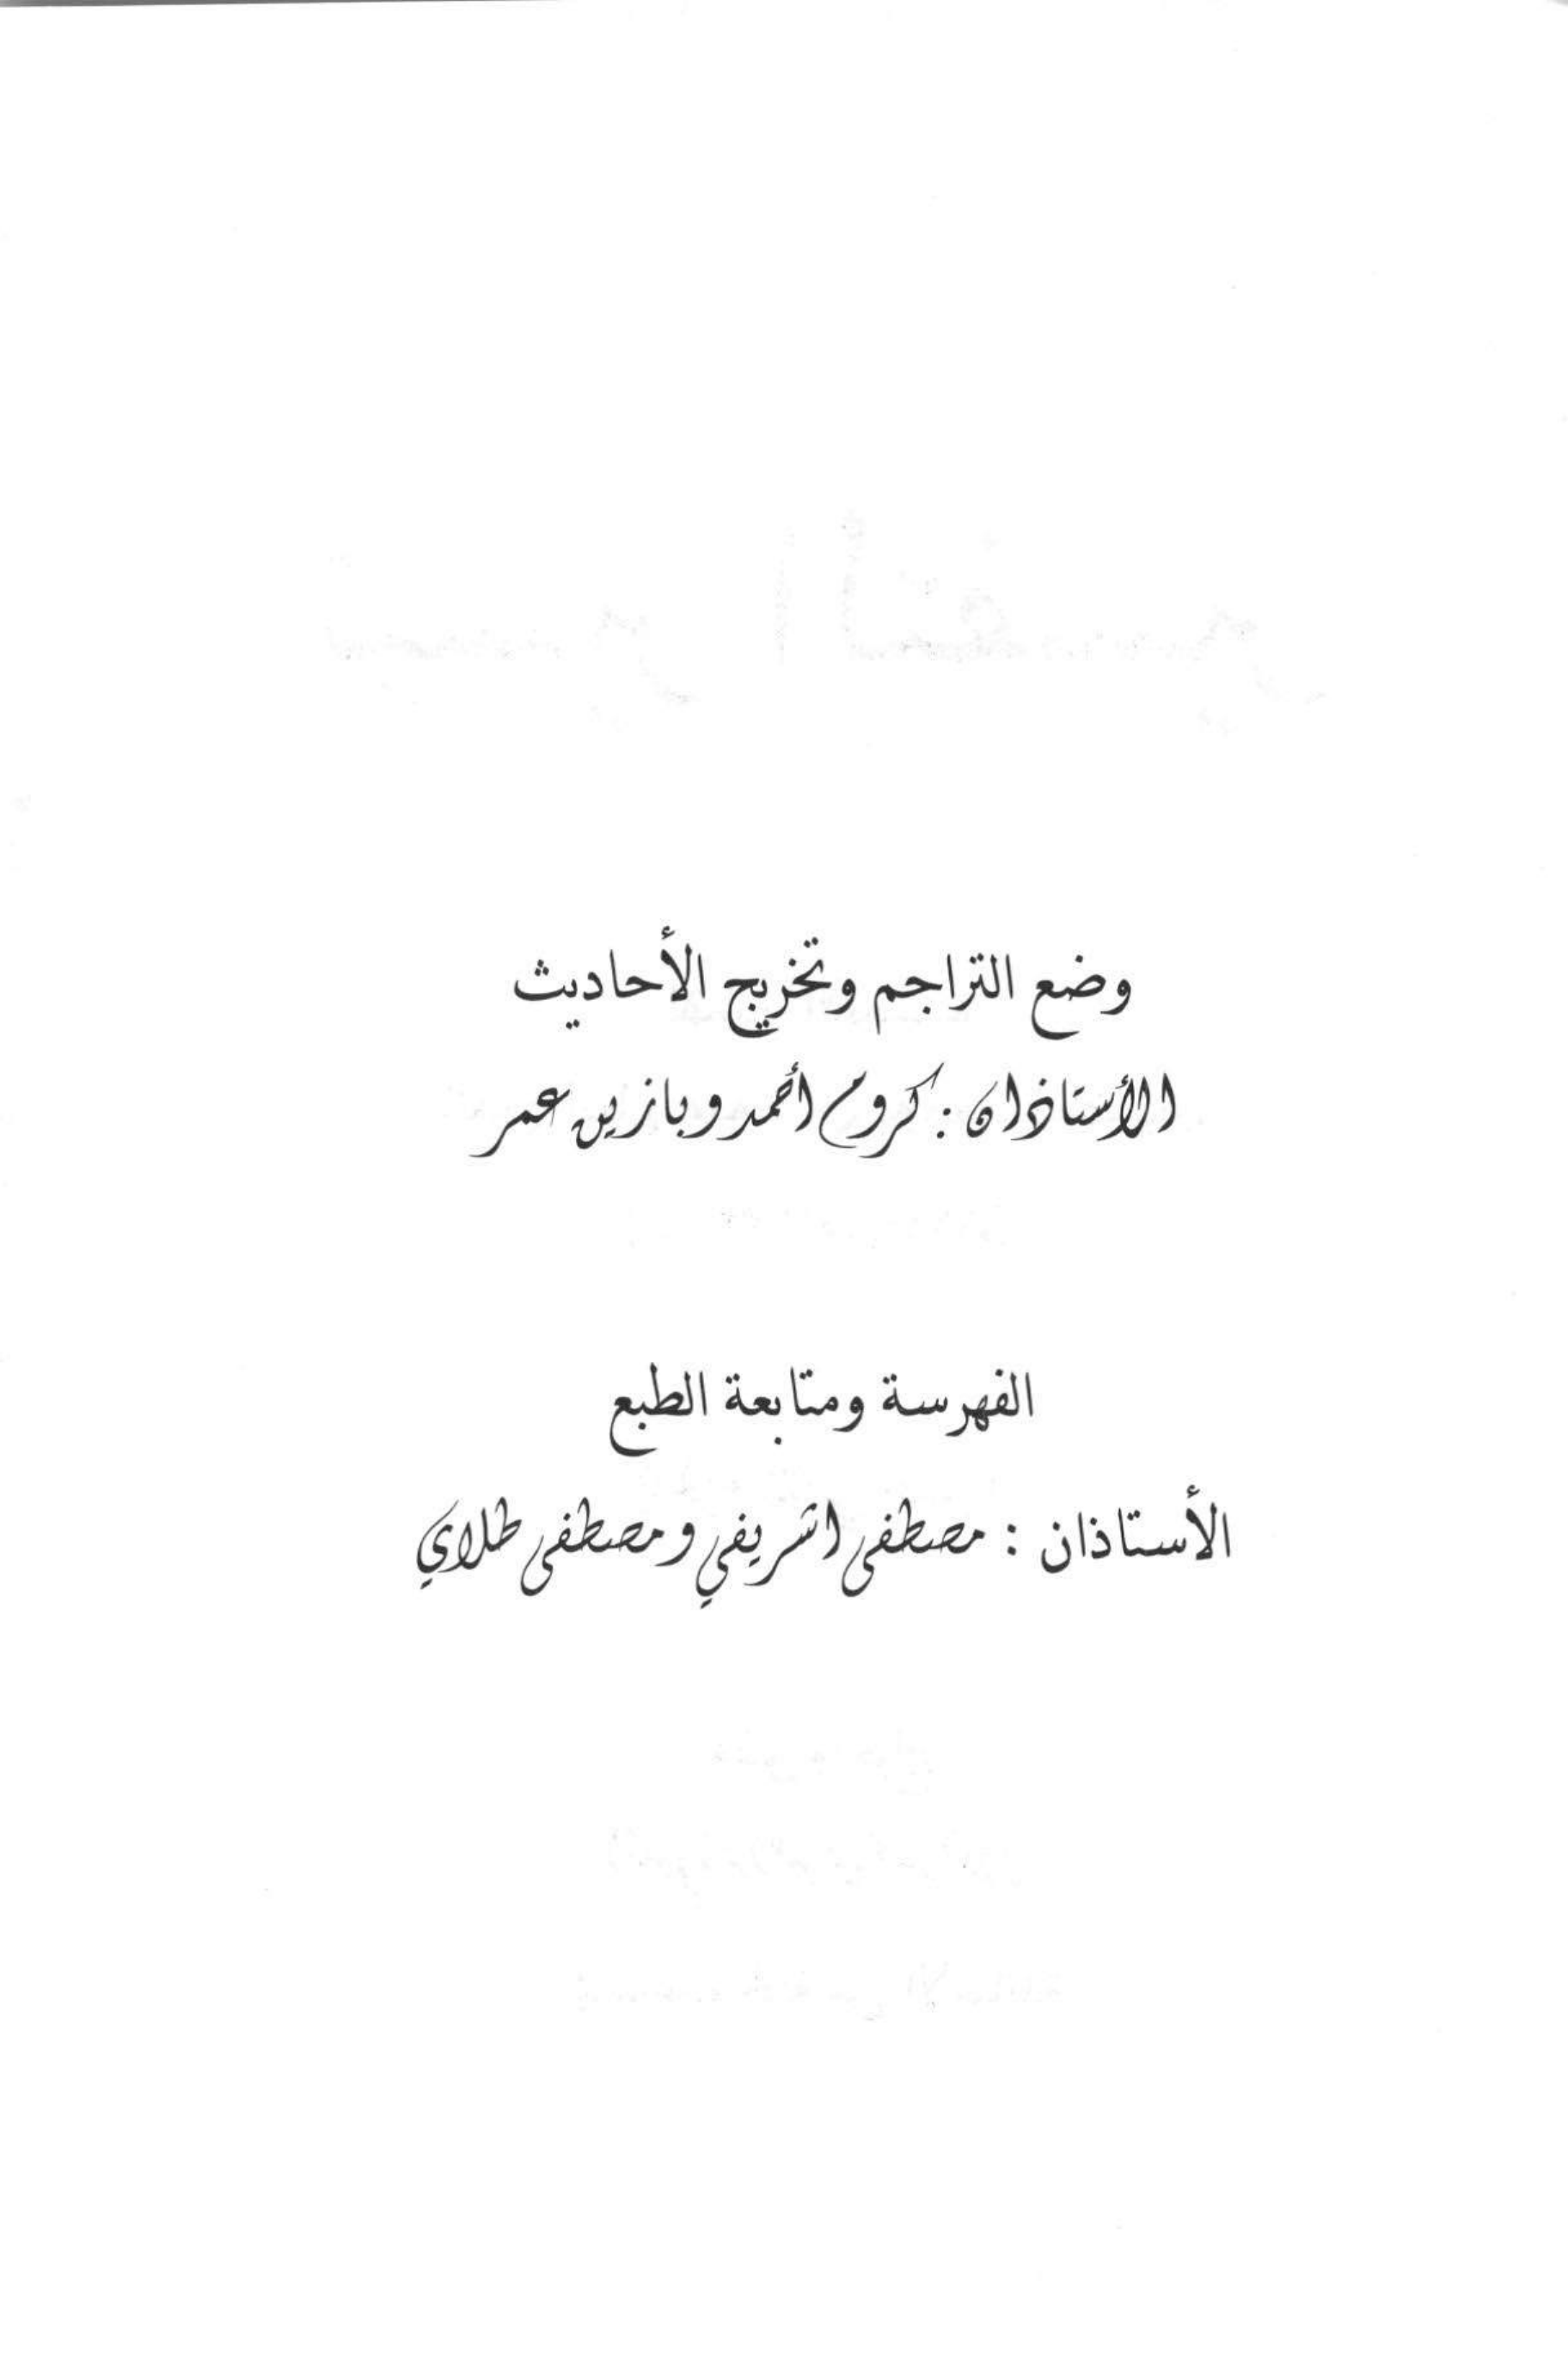 وضع التراجم وتخريج الأحاديث
الأستاذان : كروم أحمد وبازين عمر
الفهرسة ومتابعة الطبع
الأستاذان : مصطفى اشريفي ومصطفى طلاي